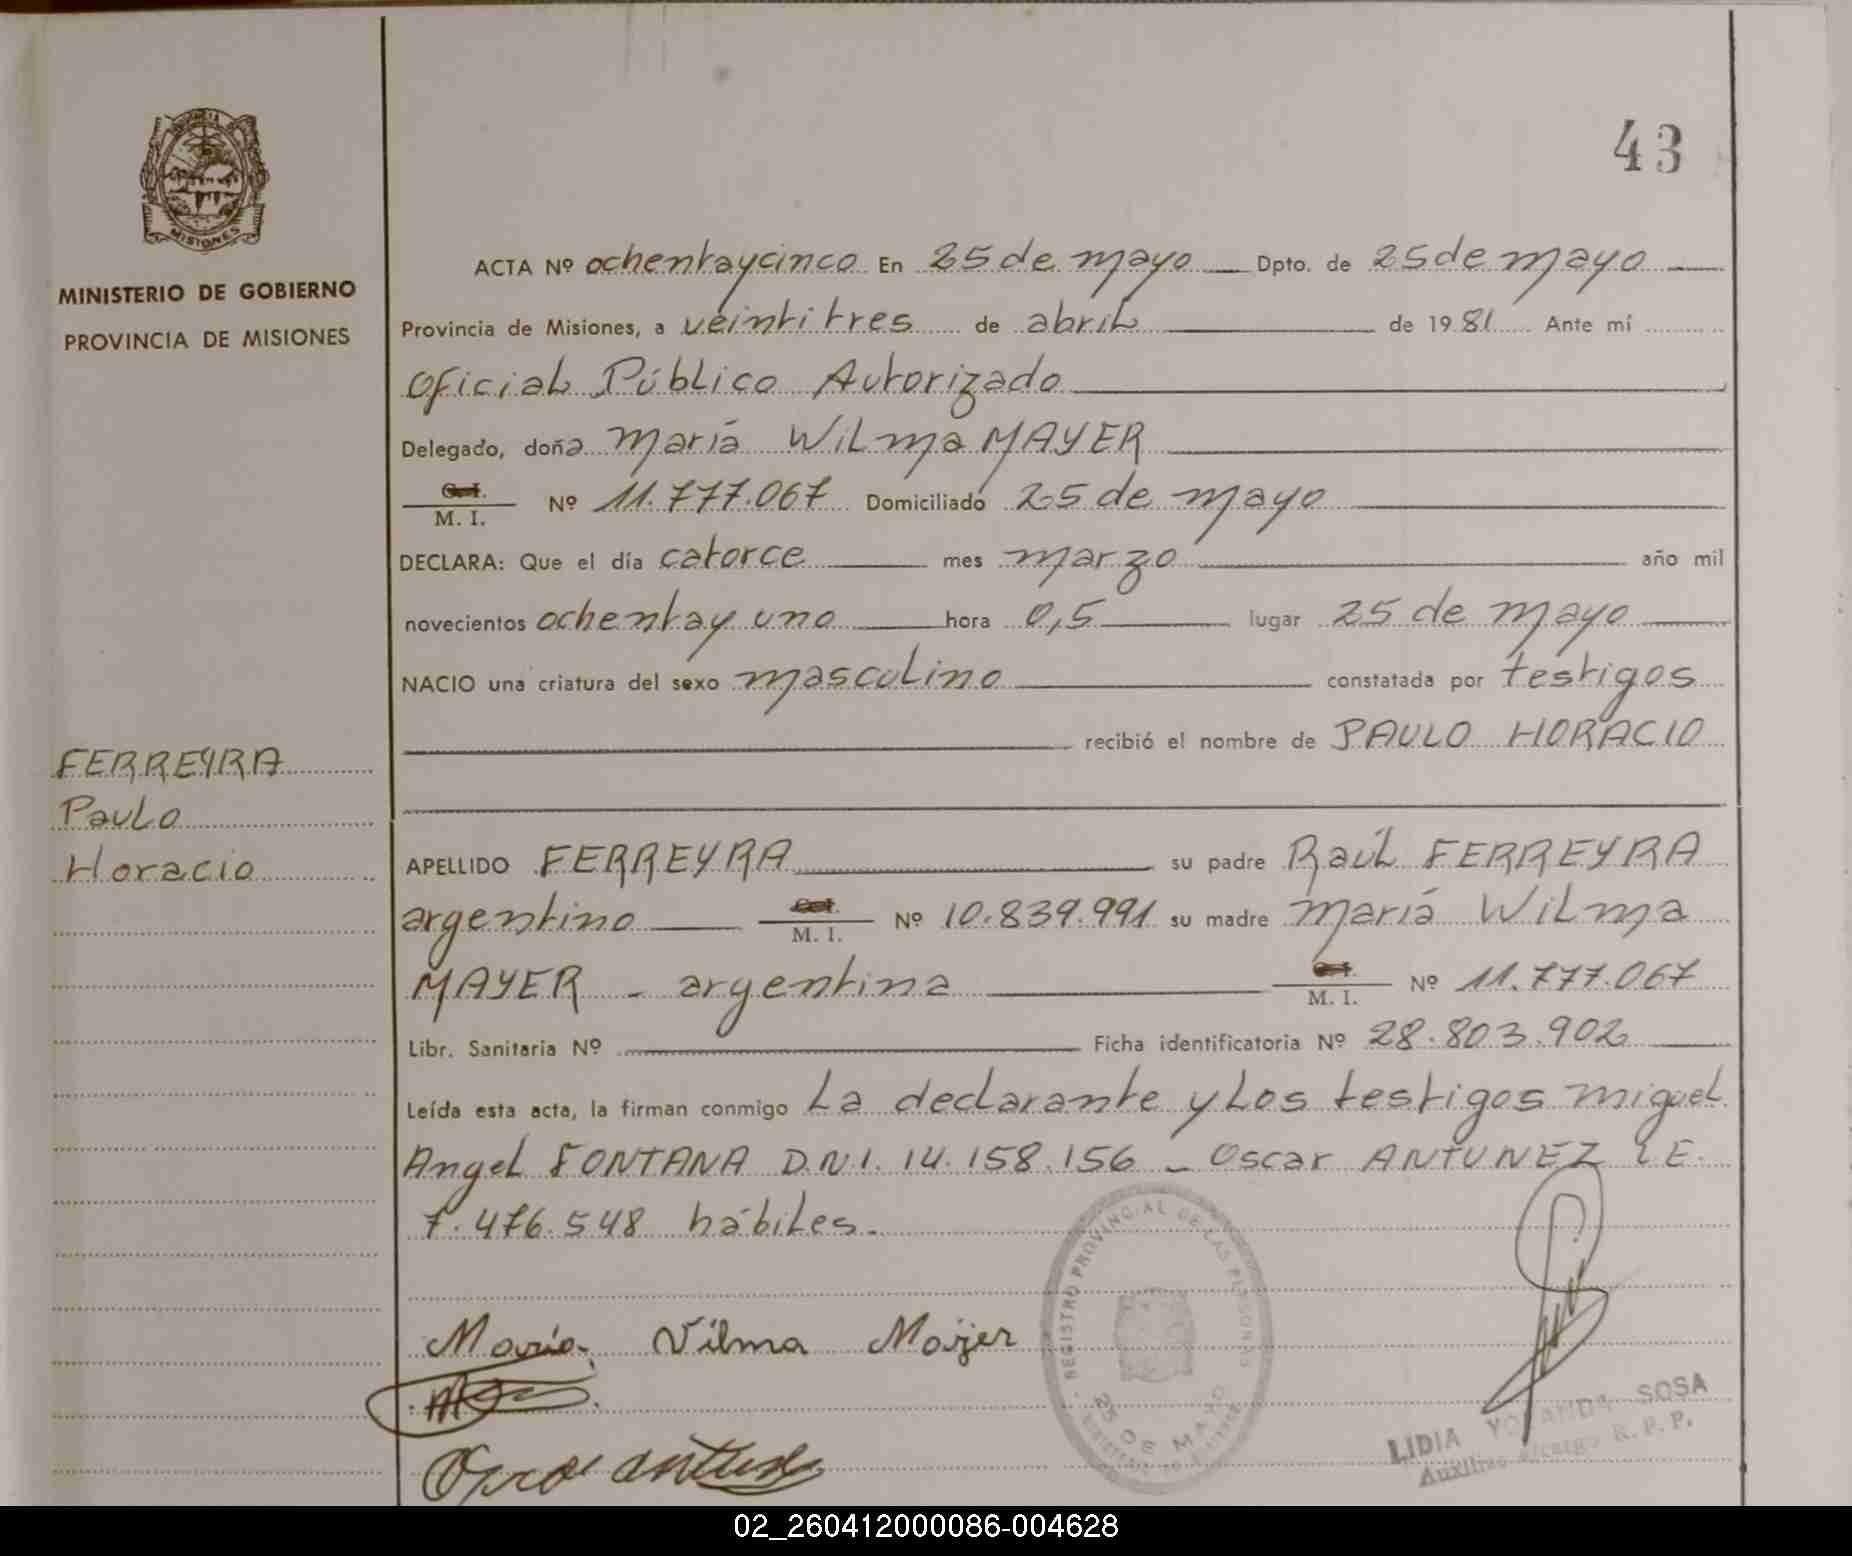 43
PROVINCIA
MISIONES
MINISTERIO DE GOBIERNO
PROVINCIA DE MISIONES
ACTA Nº ochentaycinco En 25 de mayo Dpto. de 25 de mayo
Provincia de Misiones, a veintitres de abril de 1981 Ante mí
Oficial Público Autorizado
Delegado, doña María Wilma MAYER
C.I.
M. I. Nº 11.777.067 Domiciliado 25 de mayo
DECLARA: Que el día catorce mes marzo año mil
novecientos ochentay uno hora 0,5 lugar 25 de mayo
NACIO una criatura del sexo masculino constatada por testigos
recibió el nombre de PAULO HORACIO
FERREYRA
Paulo
Horacio
APELLIDO FERREYRA su padre Raúl FERREYRA
argentino C.I. M. I. Nº 10.839.991 su madre María Wilma
MAYER - argentina C.I. M. I. Nº 11.777.067
Libr. Sanitaria Nº Ficha identificatoria Nº 28.803.902
Leída esta acta, la firman conmigo La declarante y Los testigos Miguel
Angel FONTANA D.N.I. 14.158.156 - Oscar ANTUNEZ L.E.
7.476.548 hábiles.
María Vilma Majer
REGISTRO PROVINCIAL DE LAS PERSONAS
25 DE MAYO
LIDIA YOLANDA SOSA
Auxiliar R. P. P.
02_260412000086-004628